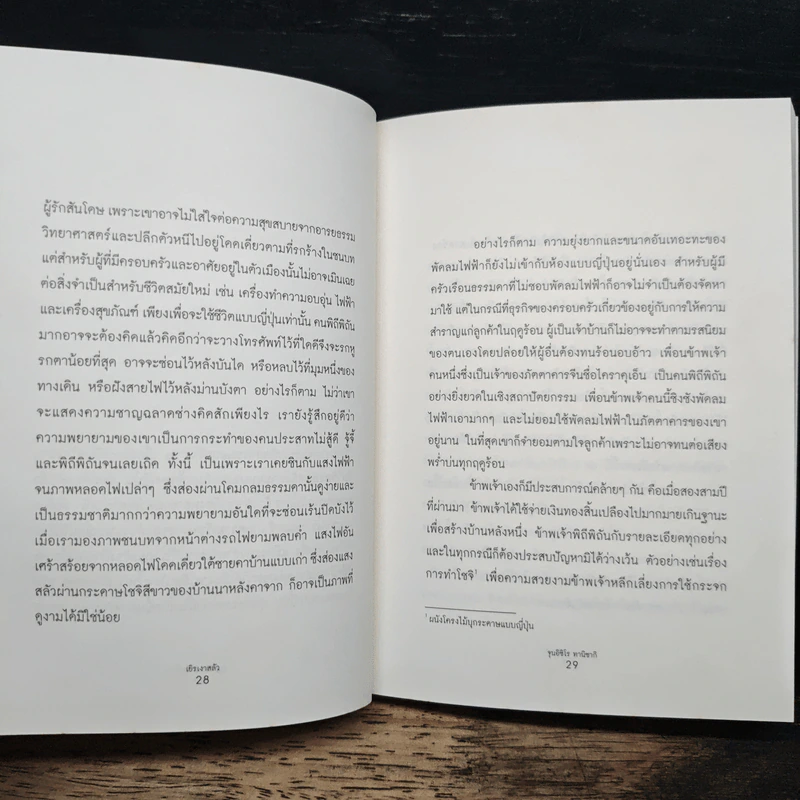 ผู้รักสันโดษ เพราะเขาอาจไม่ใส่ใจต่อความสุขสบายจากอารยธรรม
วิทยาศาสตร์และปลีกตัวหนีไปอยู่โดดเดี่ยวตามที่รกร้างในชนบท
แต่สำหรับผู้ที่มีครอบครัวและอาศัยอยู่ในตัวเมืองนั้นไม่อาจเมินเฉย
ต่อสิ่งจำเป็นสำหรับชีวิตสมัยใหม่ เช่น เครื่องทำความอบอุ่น ไฟฟ้า
และเครื่องสุขภัณฑ์ เพียงเพื่อจะใช้ชีวิตแบบญี่ปุ่นเท่านั้น คนพิถีพิถัน
มากอาจจะต้องคิดแล้วคิดอีกว่าจะวางโทรศัพท์ไว้ที่ใดดีจึงจะรกหู
รกตาน้อยที่สุด อาจจะซ่อนไว้หลังบันได หรือหลบไว้ที่มุมหนึ่งของ
ทางเดิน หรือฝังสายไฟไว้หลังม่านบังตา อย่างไรก็ตาม ไม่ว่าเขา
จะแสดงความชาญฉลาดช่างคิดสักเพียงไร เรายังรู้สึกอยู่ดีว่า
ความพยายามของเขาเป็นการกระทำของคนประสาทไม่สู้ดี จู้จี้
และพิถีพิถันจนเลยเถิด ทั้งนี้ เป็นเพราะเราเคยชินกับแสงไฟฟ้า
จนภาพหลอดไฟเปล่าๆ ซึ่งส่องผ่านโคมกลมธรรมดานั้นดูง่ายและ
เป็นธรรมชาติมากกว่าความพยายามอันใดที่จะซ่อนเร้นปิดบังไว้
เมื่อเรามองภาพชนบทจากหน้าต่างรถไฟยามพลบค่ำ แสงไฟอัน
เศร้าสร้อยจากหลอดไฟโดดเดี่ยวใต้ชายคาบ้านแบบเก่า ซึ่งส่องแสง
สลัวผ่านกระดาษโชจิสีขาวของบ้านนาหลังคาจาก ก็อาจเป็นภาพที่
ดูงามได้มิใช่น้อย
เยิรเงาสลัว
28
อย่างไรก็ตาม ความยุ่งยากและขนาดอันเทอะทะของ
พัดลมไฟฟ้าก็ยังไม่เข้ากับห้องแบบญี่ปุ่นอยู่นั่นเอง สำหรับผู้มี
ครัวเรือนธรรมดาที่ไม่ชอบพัดลมไฟฟ้าก็อาจไม่จำเป็นต้องจัดหา
มาใช้ แต่ในกรณีที่ธุรกิจของครอบครัวเกี่ยวข้องอยู่กับการให้ความ
สำราญแก่ลูกค้าในฤดูร้อน ผู้เป็นเจ้าบ้านก็ไม่อาจจะทำตามรสนิยม
ของตนเองโดยปล่อยให้ผู้อื่นต้องทนร้อนอบอ้าว เพื่อนข้าพเจ้า
คนหนึ่งซึ่งเป็นเจ้าของภัตตาคารจีนชื่อไคราคุเอ็น เป็นคนพิถีพิถัน
อย่างยิ่งยวดในเชิงสถาปัตยกรรม เพื่อนข้าพเจ้าคนนี้ชิงชังพัดลม
ไฟฟ้าเอามากๆ และไม่ยอมใช้พัดลมไฟฟ้าในภัตตาคารของเขา
อยู่นาน ในที่สุดเขาก็จำยอมตามใจลูกค้าเพราะไม่อาจทนต่อเสียง
พร่ำบ่นทุกฤดูร้อน
ข้าพเจ้าเองก็มีประสบการณ์คล้ายๆ กัน คือเมื่อสองสามปี
ที่ผ่านมา ข้าพเจ้าได้ใช้จ่ายเงินทองสิ้นเปลืองไปมากมายเกินฐานะ
เพื่อสร้างบ้านหลังหนึ่ง ข้าพเจ้าพิถีพิถันกับรายละเอียดทุกอย่าง
และในทุกกรณีก็ต้องประสบปัญหามิได้ว่างเว้น ตัวอย่างเช่นเรื่อง
การทำโชจิ¹ เพื่อความสวยงามข้าพเจ้าหลีกเลี่ยงการใช้กระจก
¹ ผนังโครงไม้บุกระดาษแบบญี่ปุ่น
จุนอิชิโร ทานิซากิ
29